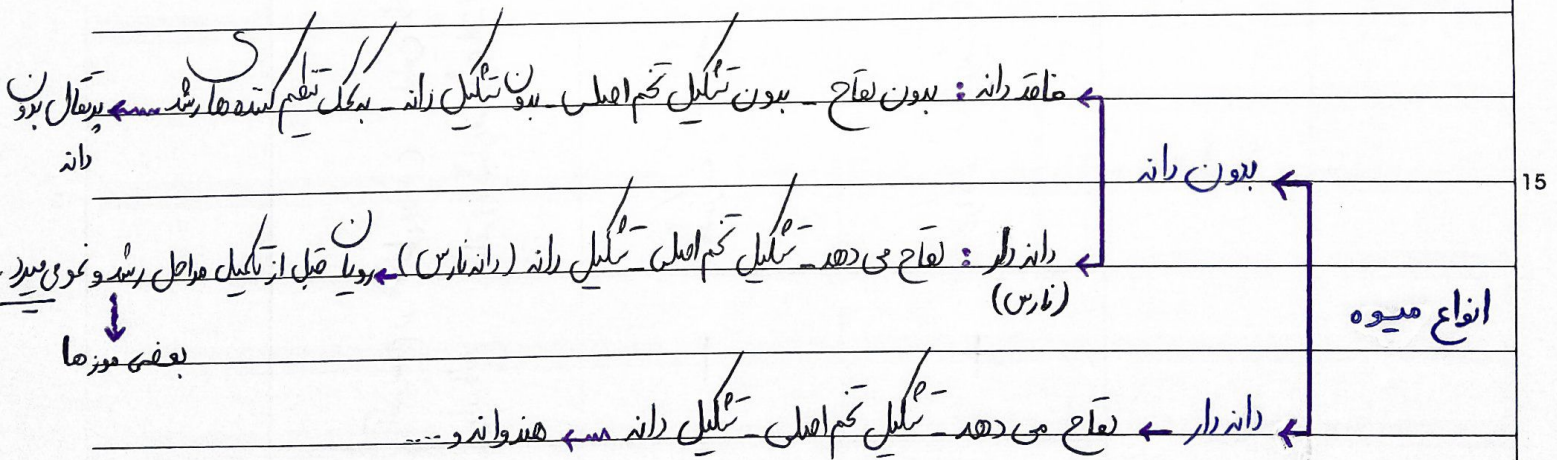 فاقد دانه : بدون لقاح - بدون تشکیل تخم اصلی - بدون تشکیل دانه - به کمک تنظیم کننده های رشد ← پرتقال بدون
دانه
بدون دانه
15
دانه دار : لقاح می دهد - تشکیل تخم اصلی - تشکیل دانه (دانه نارس) ← رویان قبل از تکمیل مراحل رشد و نمو می میرد.
(نارس)
انواع میوه
بعضی موزها
دانه دار ← لقاح می دهد - تشکیل تخم اصلی - تشکیل دانه ← هندوانه و ....